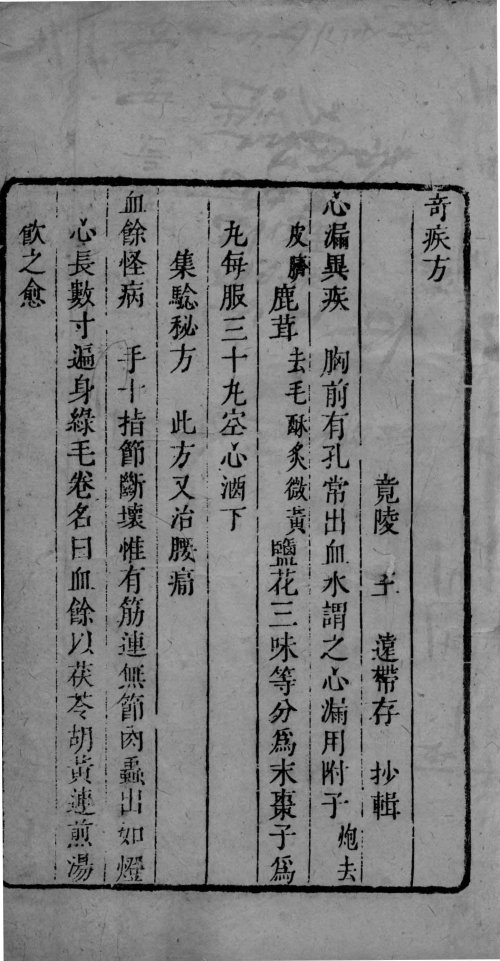 奇疾方
竟陵 王 遠帶存 抄輯
心漏異疾 胸前有孔常出血水謂之心漏用附子炮去
皮臍鹿茸去毛酥炙微黃鹽花三味等分爲末棗子爲
丸每服三十丸空心酒下
集騐秘方 此方又治腰痛
血餘怪病 手十指節斷壞惟有筋連無節肉蟲出如燈
心長數寸遍身綠毛卷名曰血餘以茯苓胡黃連煎湯
飲之愈